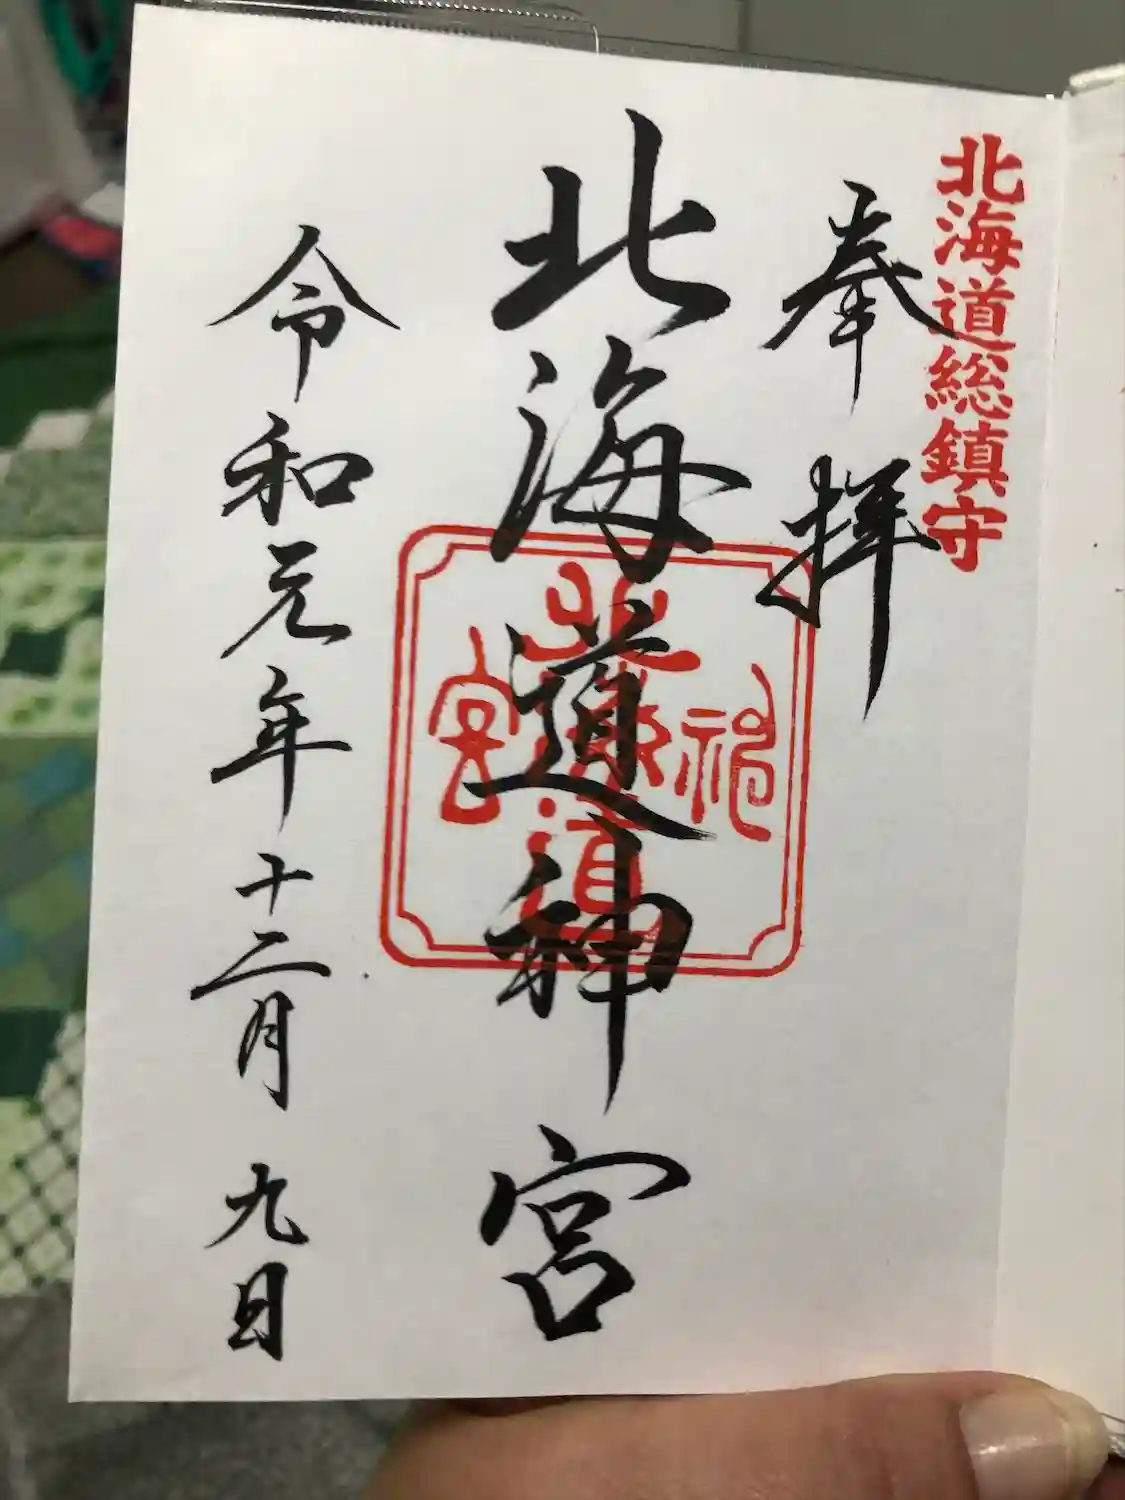 北海道総鎮守
奉拝
北海道神宮
北海道神宮
令和元年十二月九日